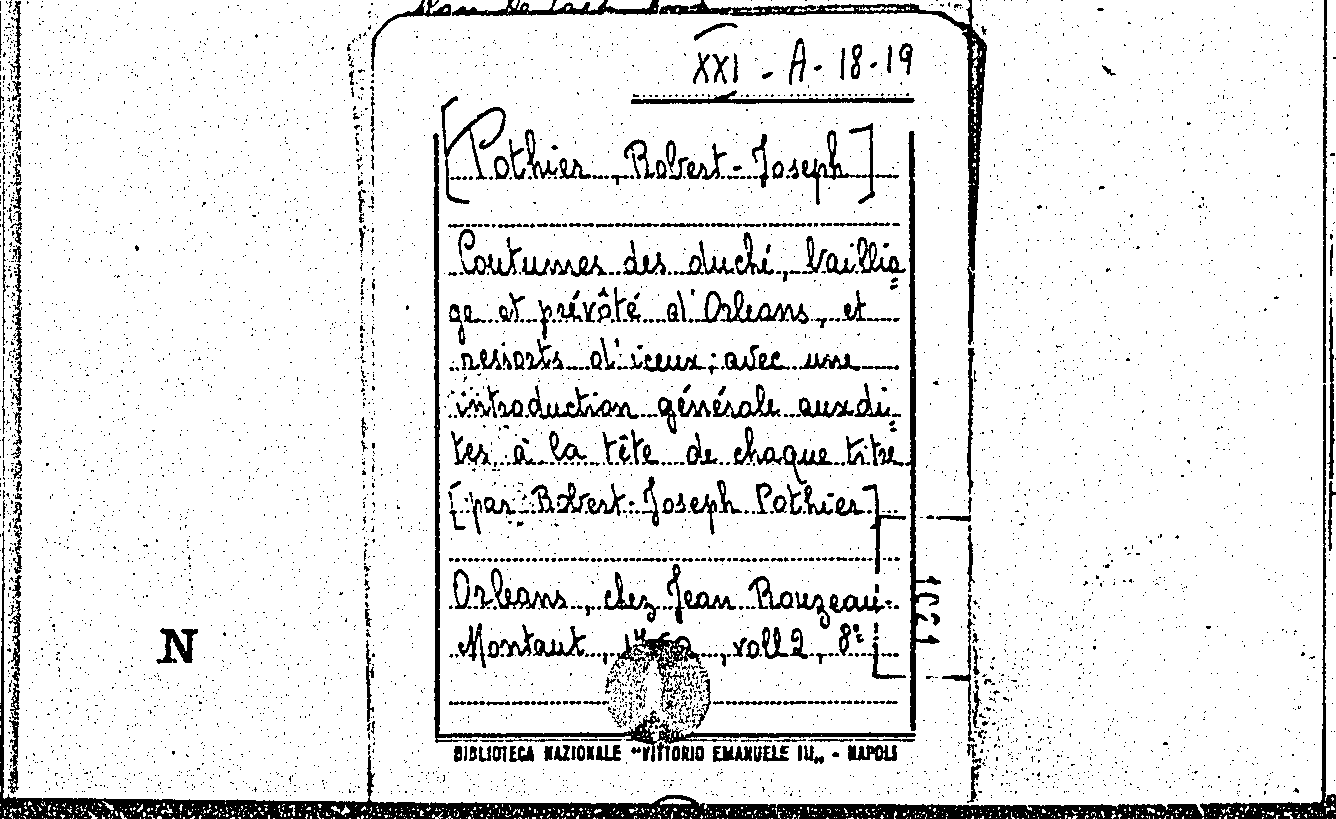 XXI - A - 18-19
[Pothier, Robert-Joseph]
Coutumes des duché, baillia=
ge et prévôté d'Orleans, et
ressorts d'iceux; avec une
introduction générale auxdi=
tes à la tête de chaque titre
[par Robert-Joseph Pothier]
Orleans, chez Jean Rouzeau-
Montaut, voll 2, 8º
N
BIBLIOTECA NAZIONALE "VITTORIO EMANUELE III„ - NAPOLI